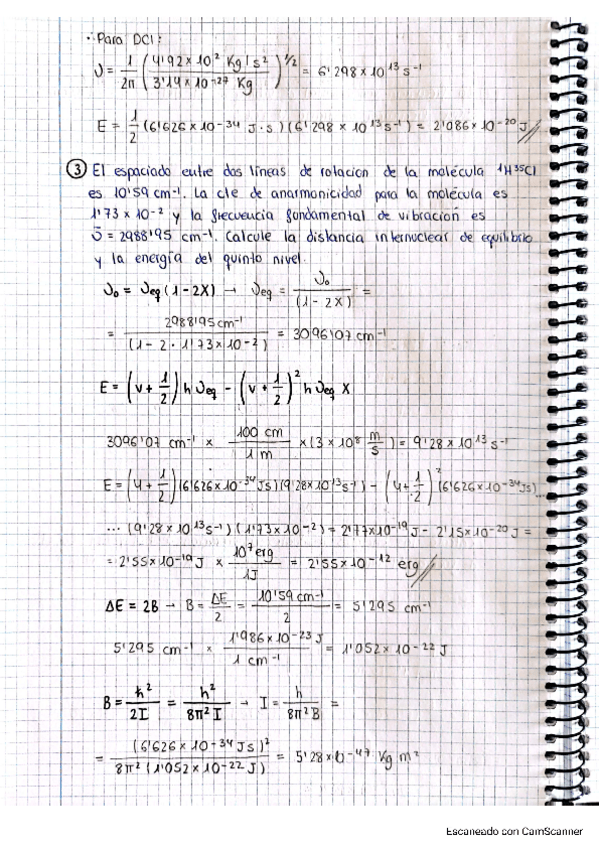 ∴ Para DCl:
ν = 1/2π (4'92 × 10² Kg/s² / 3'14 × 10⁻²⁷ Kg)^1/2 = 6'298 × 10¹³ s⁻¹
E = 1/2 (6'626 × 10⁻³⁴ J·s)(6'298 × 10¹³ s⁻¹) = 2'086 × 10⁻²⁰ J //
③ El espaciado entre dos lineas de rotacion de la molécula ¹H³⁵Cl
es 10'59 cm⁻¹. La cte de anarmonicidad para la molécula es
1'73 × 10⁻² y la frecuencia fundamental de vibración es
ν̄ = 2988'95 cm⁻¹. Calcule la distancia internuclear de equilibrio
y la energía del quinto nivel.
ν₀ = νeq (1 - 2X) → νeq = ν₀ / (1 - 2X) =
= 2988'95 cm⁻¹ / (1 - 2 · 1'73 × 10⁻²) = 3096'07 cm⁻¹
E = (v + 1/2) h νeq - (v + 1/2)² h νeq X
3096'07 cm⁻¹ × 100 cm / 1 m × (3 × 10⁸ m/s) = 9'28 × 10¹³ s⁻¹
E = (4 + 1/2)(6'626 × 10⁻³⁴ Js)(9'28 × 10¹³ s⁻¹) - (4 + 1/2)² (6'626 × 10⁻³⁴ Js)...
... (9'28 × 10¹³ s⁻¹)(1'73 × 10⁻²) = 2'77 × 10⁻¹⁹ J - 2'15 × 10⁻²⁰ J =
= 2'55 × 10⁻¹⁹ J × 10⁷ erg / 1J = 2'55 × 10⁻¹² erg //
ΔE = 2B → B = ΔE/2 = 10'59 cm⁻¹ / 2 = 5'295 cm⁻¹
5'295 cm⁻¹ × 1'986 × 10⁻²³ J / 1 cm⁻¹ = 1'052 × 10⁻²² J
B = ħ² / 2I = h² / 8π² I → I = h / 8π² B =
= (6'626 × 10⁻³⁴ Js)² / 8π² (1'052 × 10⁻²² J) = 5'28 × 10⁻⁴⁷ Kg m²
Escaneado con CamScanner